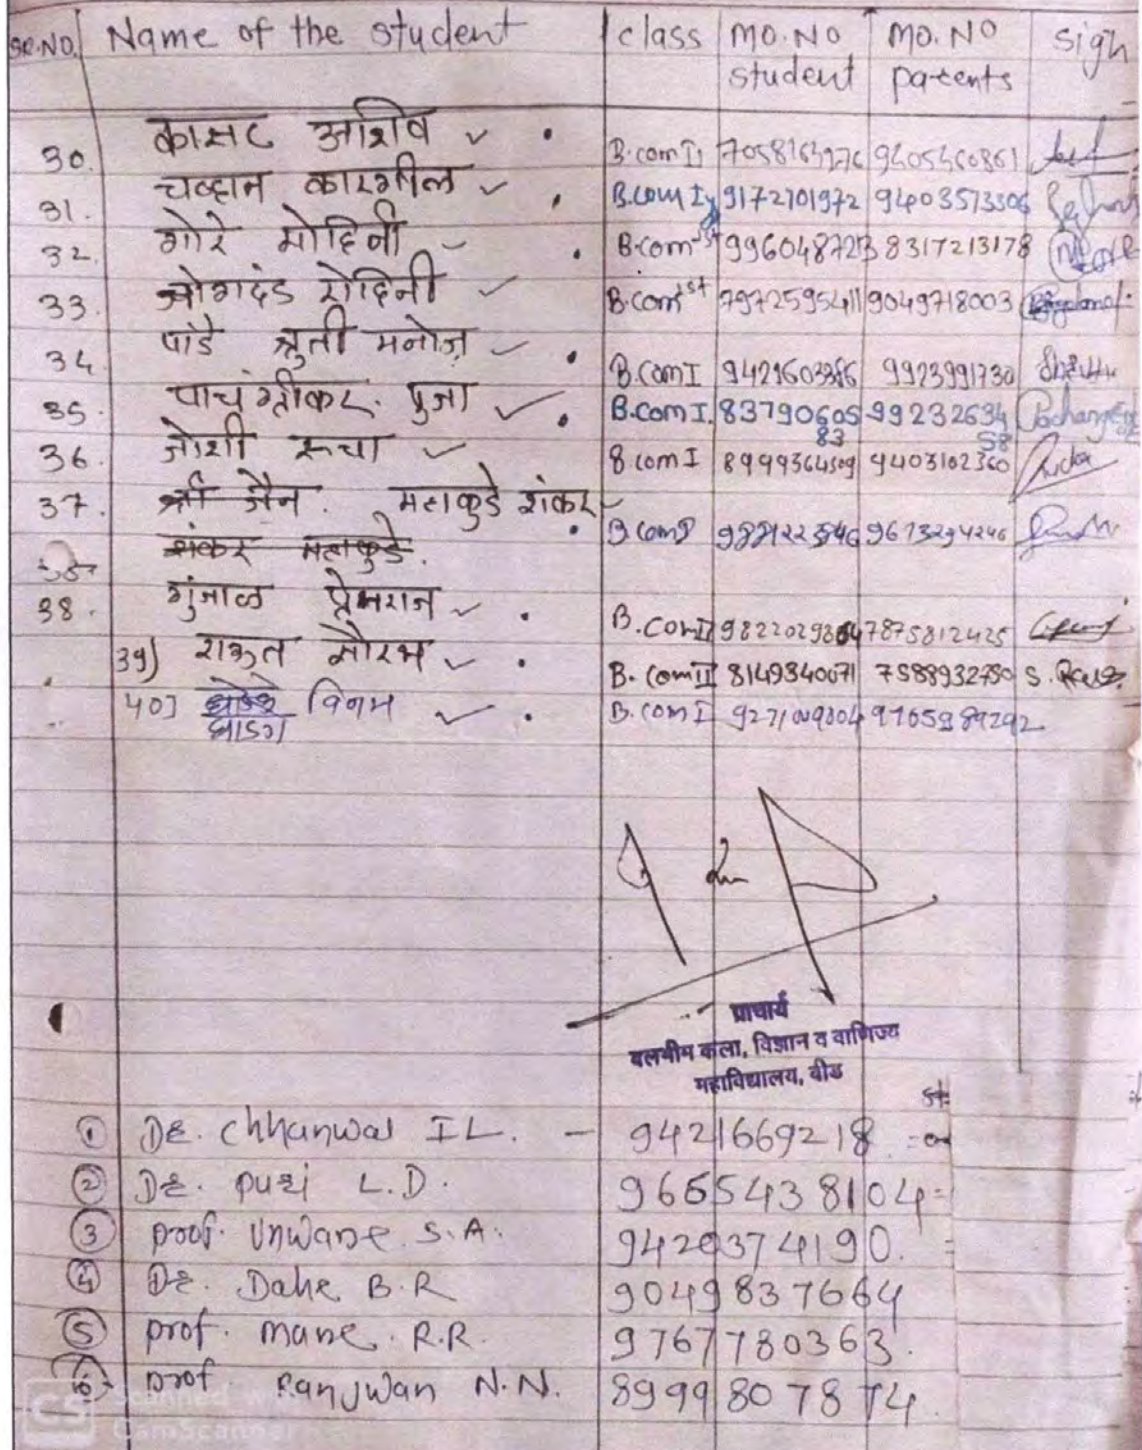 SR.NO. Name of the student class MO.NO student MO.NO parents sign
30. कासट आशिष B.com II 7058163976 9405460861
31. चव्हाण कारभील B.com Iy 9172701972 9403573306
32. गोरे मोहिनी B.com 1st 9960487213 8317213178
33. जोगदंड रोहिनी B.com 1st 7972595411 9049718003
34. पांडे श्रुती मनोज B.com I 9421603386 9923991730
35. पाचंग्रीकर. पुजा B.com I. 8379060583 9923263458
36. जोशी ऋचा B.com I 8999364509 9403102360
37. श्री जैन. महाकुडे शंकर B.com
शंकर महाकुडे.
38. गुंजाळ प्रेमराज B.com II 7875812425
39) राऊत सौरभ B.com II 8149340671 7588932750 S. Raut
40] घाडगे विनम B.com I
प्राचार्य
बलभीम कला, विज्ञान व वाणिज्य
महाविद्यालय, बीड
① Dr. Chhanwal I L. — 9421669218
② Dr. puri L.D. 9665438104
③ prof. Unwane S.A. 9420374190.
④ Dr. Dahe B.R 9049837664
⑤ prof. mane. R.R. 9767780363.
⑥ prof Ranjwan N.N. 8999807874.
CS Scanned with
CamScanner